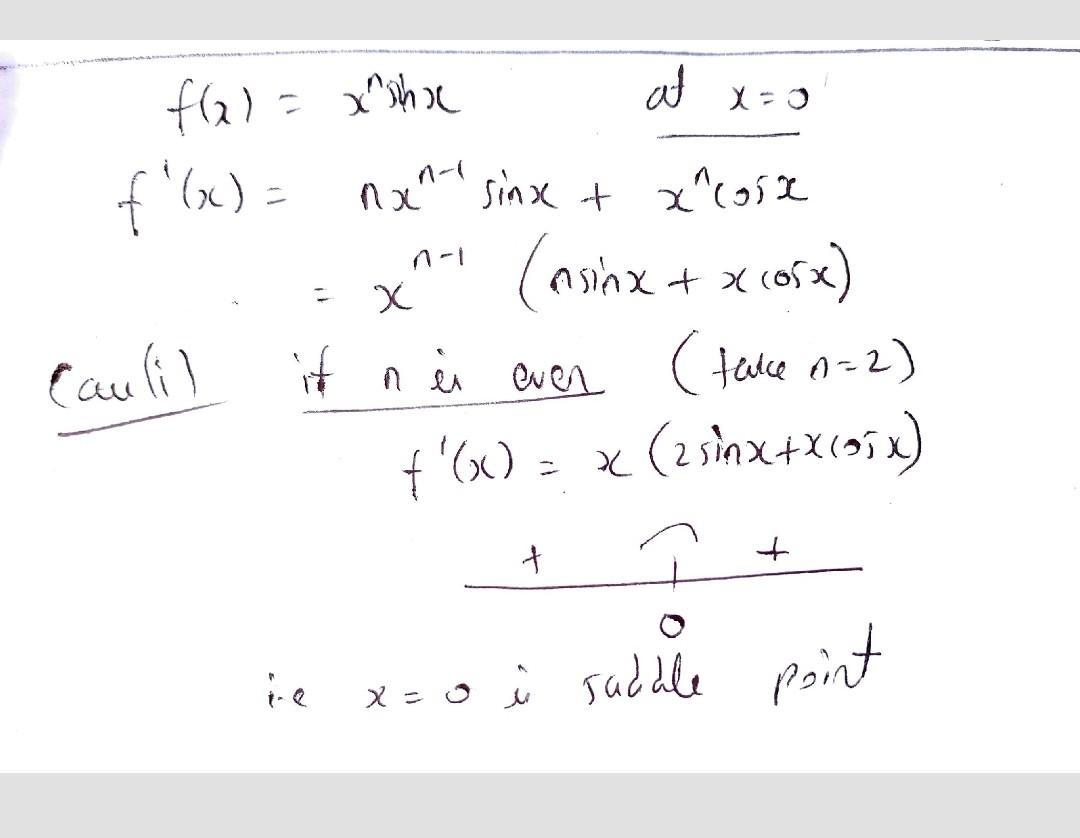 f(x) = xⁿsinx at x=0
f'(x) = nxⁿ⁻¹ sinx + xⁿcosx
= xⁿ⁻¹ (nsinx + xcosx)
Case(i) if n is even (take n=2)
f'(x) = x (2sinx+xcosx)
+ +
0
i.e x=0 is saddle point